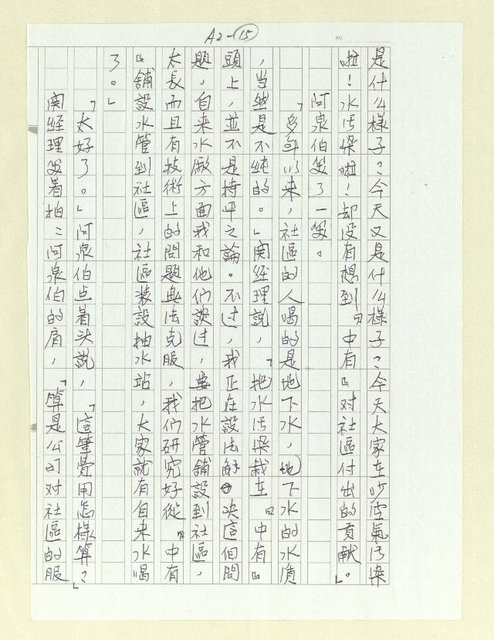 A2-15
是什么樣子？今天又是什么樣子？今天大家在吵空氣污染
啦！水污染啦！却沒有想到『中有』對社區付出的貢献。」
阿泉伯笑了一笑。
「多年以來，社區的人喝的是地下水，地下水的水質
，当然是不純的。」関經理說，「把水污染栽在『中有』
頭上，並不是持平之論。不过，我正在設法解決這個問
題，自來水廠方面我和他們談过，要把水管舖設到社區，
太長而且有技術上的問題無法克服，我們研究好從『中有
』舖設水管到社區，社區裝設抽水站，大家就有自來水喝
了。」
「太好了。」阿泉伯点着头說，「這筆費用怎樣算？」
関經理笑着拍拍阿泉伯的肩，「算是公司对社區的服